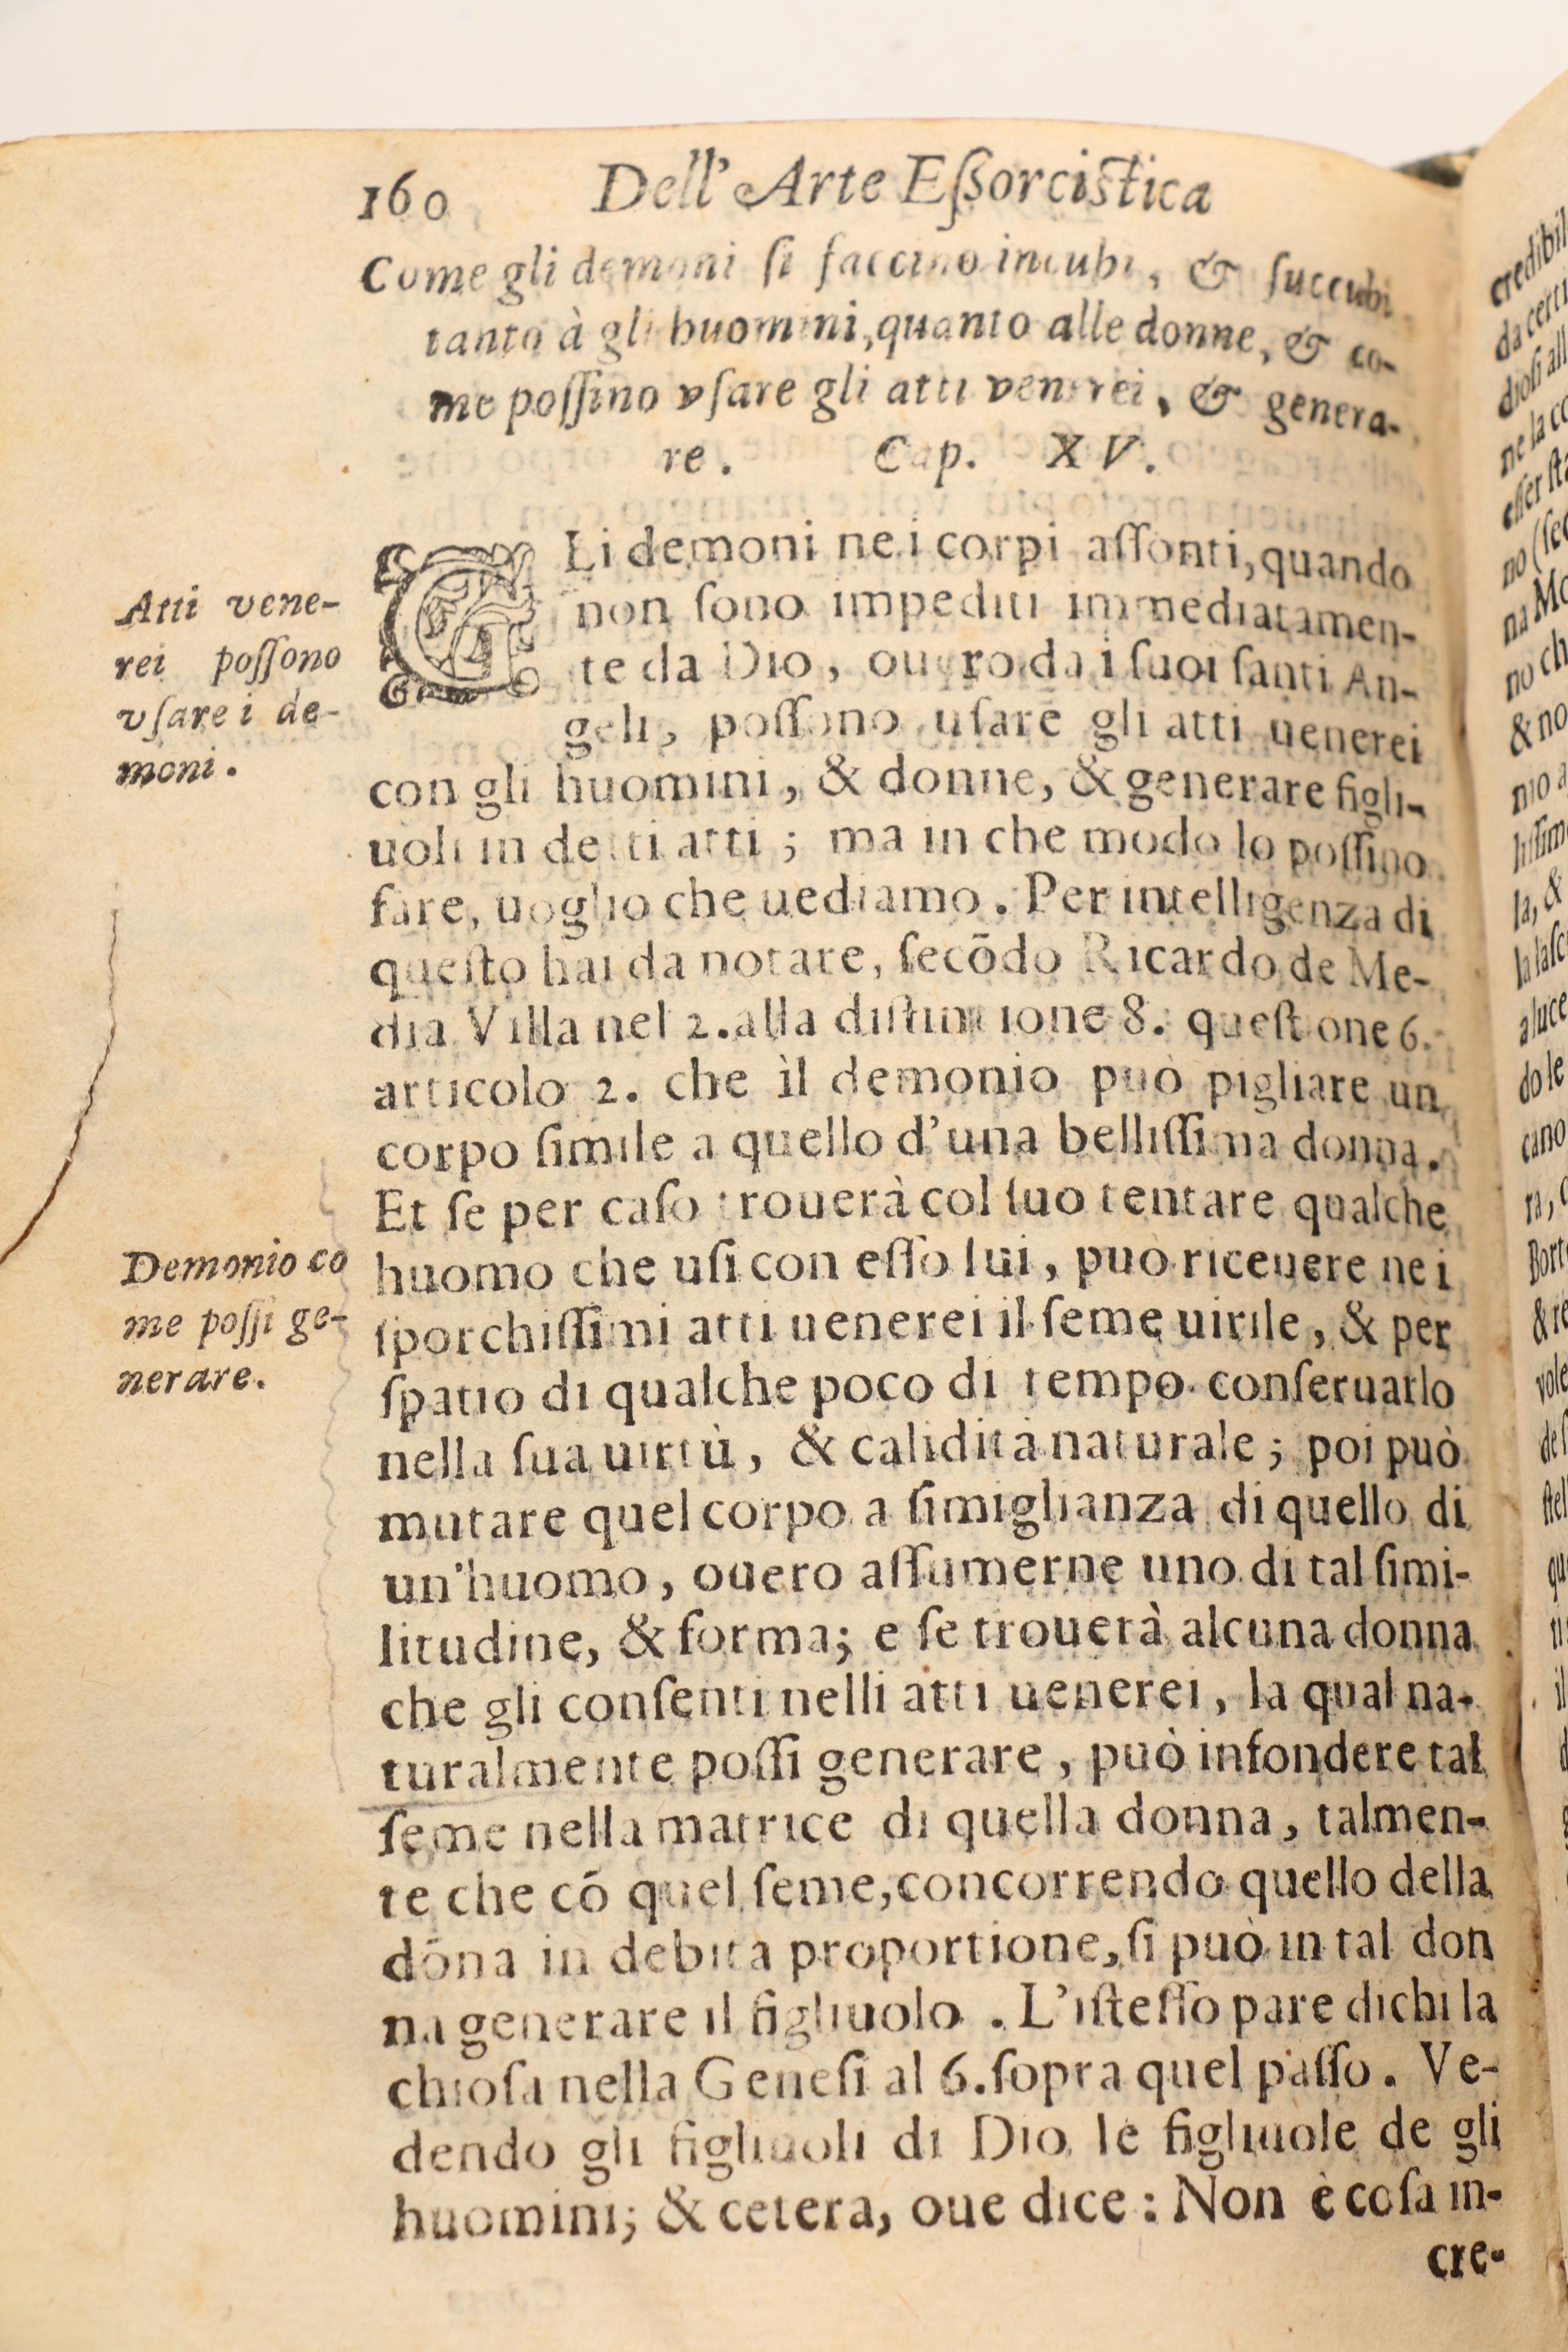 160 Dell'Arte Eſſorciſtica
Come gli demoni ſi faccino incubi, & ſuccubi
tanto à gli huomini, quanto alle donne, & co-
me poſſino vſare gli atti venerei, & genera-
re. Cap. XV.
GLi demoni ne i corpi aſſonti, quando
non ſono impediti immediatamen-
te da Dio, ouero da i ſuoi ſanti An-
geli, poſſono uſare gli atti uenerei
con gli huomini, & donne, & generare figli-
uoli in detti atti; ma in che modo lo poſſino
fare, uoglio che uediamo. Per intelligenza di
queſto hai da notare, ſecōdo Ricardo de Me-
dia Villa nel 2. alla diſtintione 8. queſtione 6.
articolo 2. che ìl demonio può pigliare un
corpo ſimile a quello d'una belliſſima donna.
Et ſe per caſo trouerà col ſuo tentare qualche
huomo che uſi con eſſo lui, può riceuere ne i
ſporchiſſimi atti uenerei il ſeme uirile, & per
ſpatio di qualche poco di tempo conſeruarlo
nella ſua uirtù, & calidità naturale; poi può
mutare quel corpo a ſimiglianza di quello di
un'huomo, ouero aſſumerne uno di tal ſimi-
litudine, & forma; e ſe trouerà alcuna donna
che gli conſenti nelli atti uenerei, la qual na-
turalmente poſſi generare, può infondere tal
ſeme nella matrice di quella donna, talmen-
te che cō quel ſeme, concorrendo quello della
dōna in debita proportione, ſi può in tal don
na generare il figliuolo. L'iſteſſo pare dichi la
chioſa nella Geneſi al 6. ſopra quel paſſo. Ve-
dendo gli figliuoli di Dio le figliuole de gli
huomini; & cetera, oue dice: Non è coſa in-
cre-
Atti vene-
rei poſſono
vſare i de-
moni.
Demonio co
me poſſi ge-
nerare.